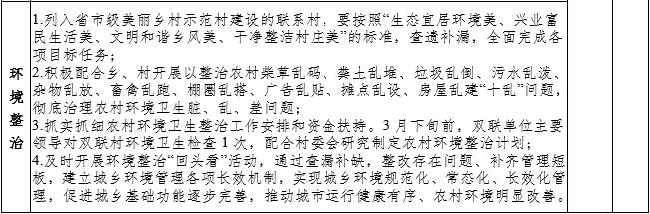 环境整治
1.列入省市级美丽乡村示范村建设的联系村，要按照“生态宜居环境美、兴业富
民生活美、文明和谐乡风美、干净整洁村庄美”的标准，查遗补漏，全面完成各
项目标任务；
2.积极配合乡、村开展以整治农村柴草乱码、粪土乱堆、垃圾乱倒、污水乱泼、
杂物乱放、畜禽乱跑、棚圈乱搭、广告乱贴、摊点乱设、房屋乱建“十乱”问题，
彻底治理农村环境卫生脏、乱、差问题；
3.抓实抓细农村环境卫生整治工作安排和资金扶持。3 月下旬前，双联单位主要
领导对双联村环境卫生检查 1 次，配合村委会研究制定农村环境整治计划；
4.及时开展环境整治“回头看”活动，通过查漏补缺，整改存在问题、补齐管理短
板，建立城乡环境管理各项长效机制，实现城乡环境规范化、常态化、长效化管
理，促进城乡基础功能逐步完善，推动城市运行健康有序、农村环境明显改善。